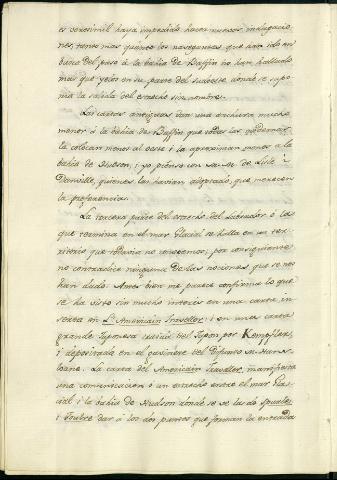 es verosimil haya impedido hacer nuevas indagacio
nes, tanto mas quanto los navegantes que han ido en
busca del paso à la bahia de Baffin no han hallado
mas que yelos en su parte del sudoeste donde se supo
nia la salida del estrecho sin nombre.
Las cartas antiguas dan una anchura mucho
menor à la bahia de Baffin que todas las modernas
la colocan menos al oeste i la aproximan menos a la
bahia de Hudson; i yo pienso con de Lisle i
Danville, quienes las havian adoptado, que merecen
la preferencia.
La tercera parte del estrecho del Labrador ò la
que termina en el mar Glacial se halla en un ter
ritorio que todavia no conocemos; por consiguiente
no contradice ninguna de las nociones que se nos
han dado. Antes bien me parece confirma lo que
se ha visto sin mucho interés en una carta in
serta en L'Americain Traveller; i en una carta
grande Japonesa traida del Japon por Kempfer,
i depositada en el gavinete del Difunto Hans
loane. La carta del American Traveller, manifiesta
una comunicacion ò un estrecho entre el mar Gla
cial i la bahia de Hudson donde se ve las do
i Foulxe dar à los dos puntos que forman la entrada